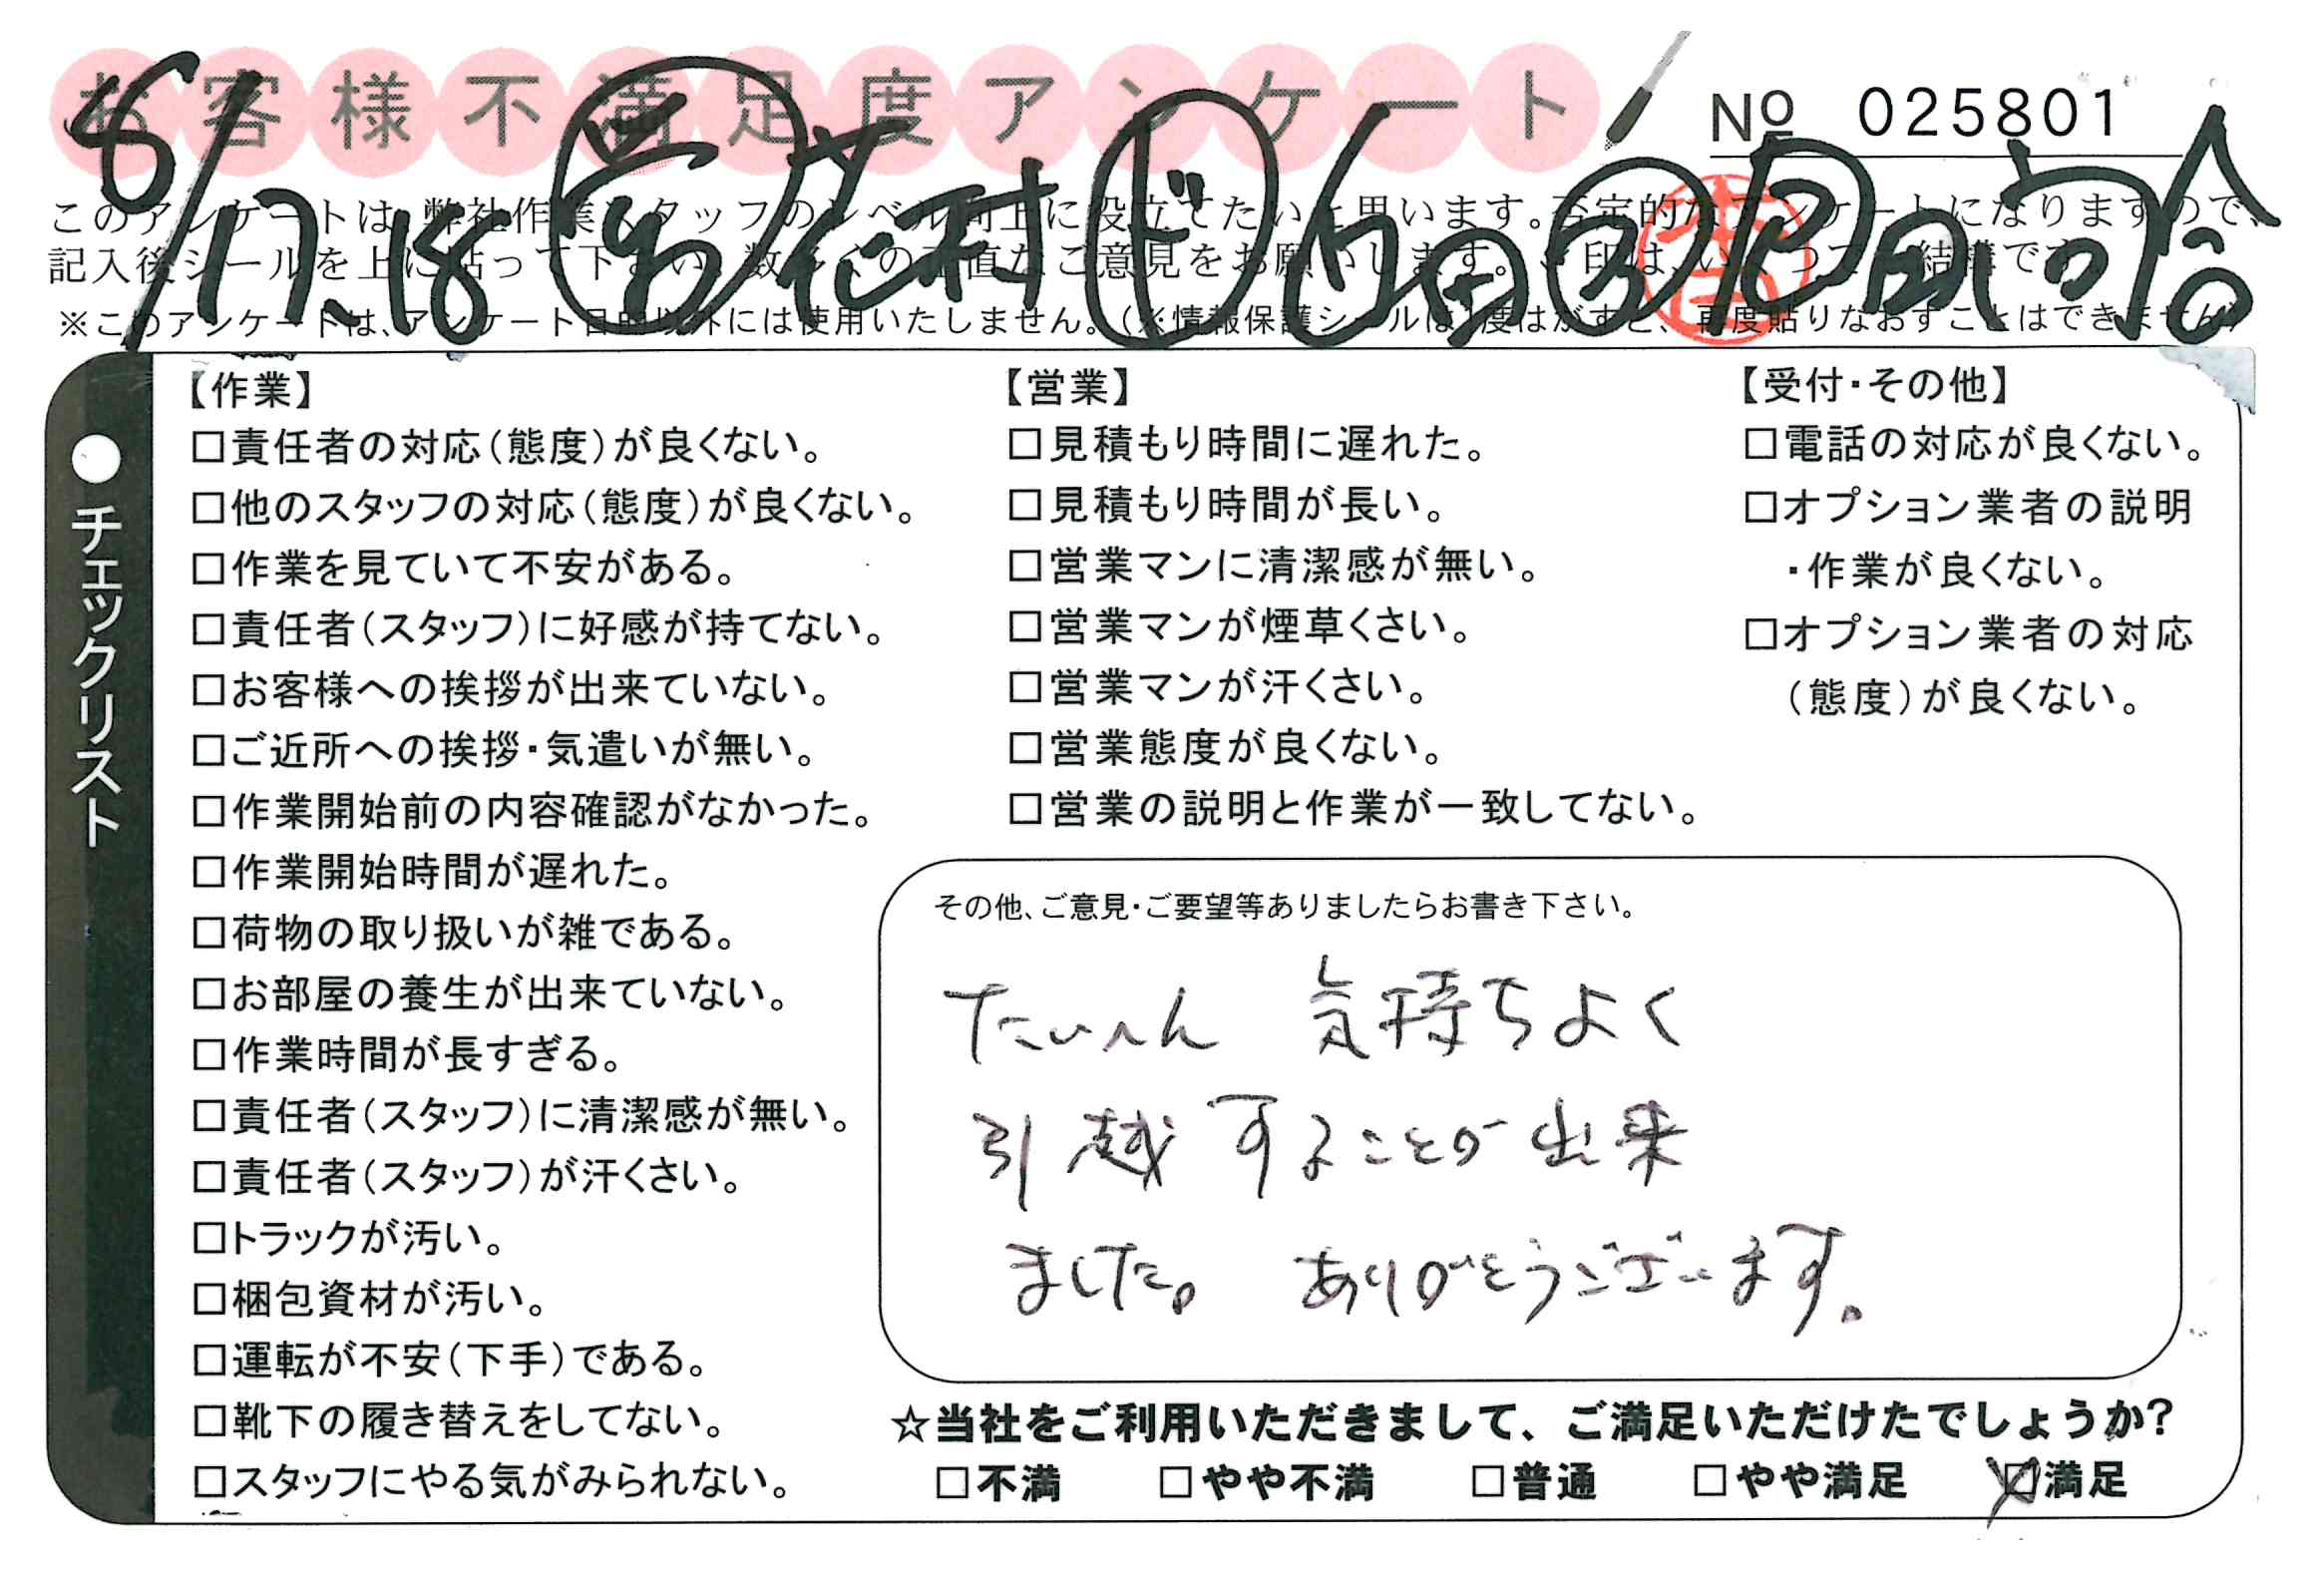 お客様不満足度アンケート
No 025801
8/17、18 営 花村 ド 竹田
このアンケートは、弊社作業スタッフのレベル向上に役立てたいと思います。否定的なアンケートになりますので、
記入後シールを上に貼って下さい。数多くの正直なご意見をお願いします。 印は、いくつでも結構です
※このアンケートは、アンケート目的以外には使用いたしません。(※情報保護シールは1度はがすと、再度貼りなおすことはできません)
●チェックリスト
【作業】
□責任者の対応(態度)が良くない。
□他のスタッフの対応(態度)が良くない。
□作業を見ていて不安がある。
□責任者(スタッフ)に好感が持てない。
□お客様への挨拶が出来ていない。
□ご近所への挨拶・気遣いが無い。
□作業開始前の内容確認がなかった。
□作業開始時間が遅れた。
□荷物の取り扱いが雑である。
□お部屋の養生が出来ていない。
□作業時間が長すぎる。
□責任者(スタッフ)に清潔感が無い。
□責任者(スタッフ)が汗くさい。
□トラックが汚い。
□梱包資材が汚い。
□運転が不安(下手)である。
□靴下の履き替えをしてない。
□スタッフにやる気がみられない。
【営業】
□見積もり時間に遅れた。
□見積もり時間が長い。
□営業マンに清潔感が無い。
□営業マンが煙草くさい。
□営業マンが汗くさい。
□営業態度が良くない。
□営業の説明と作業が一致してない。
【受付・その他】
□電話の対応が良くない。
□オプション業者の説明
・作業が良くない。
□オプション業者の対応
(態度)が良くない。
その他、ご意見・ご要望等ありましたらお書き下さい。
たいへん 気持ちよく
引越することが出来
ました。 ありがとうございます。
☆当社をご利用いただきまして、ご満足いただけたでしょうか?
□不満 □やや不満 □普通 □やや満足 ☒満足